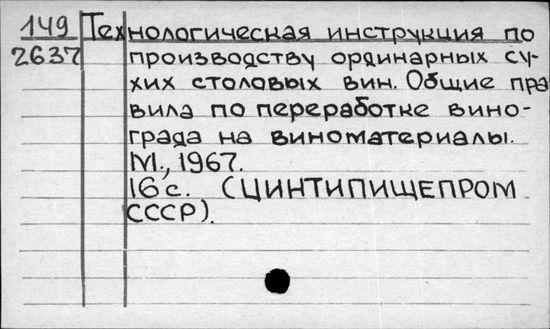 149 Технологическая инструкция по
2637 производству ординарных су-
хих столовых вин. Общие пра
вила по переработке вино-
града на виноматериалы.
М., 1967.
16 с. (ЦИНТИПИЩЕПРОМ
СССР).